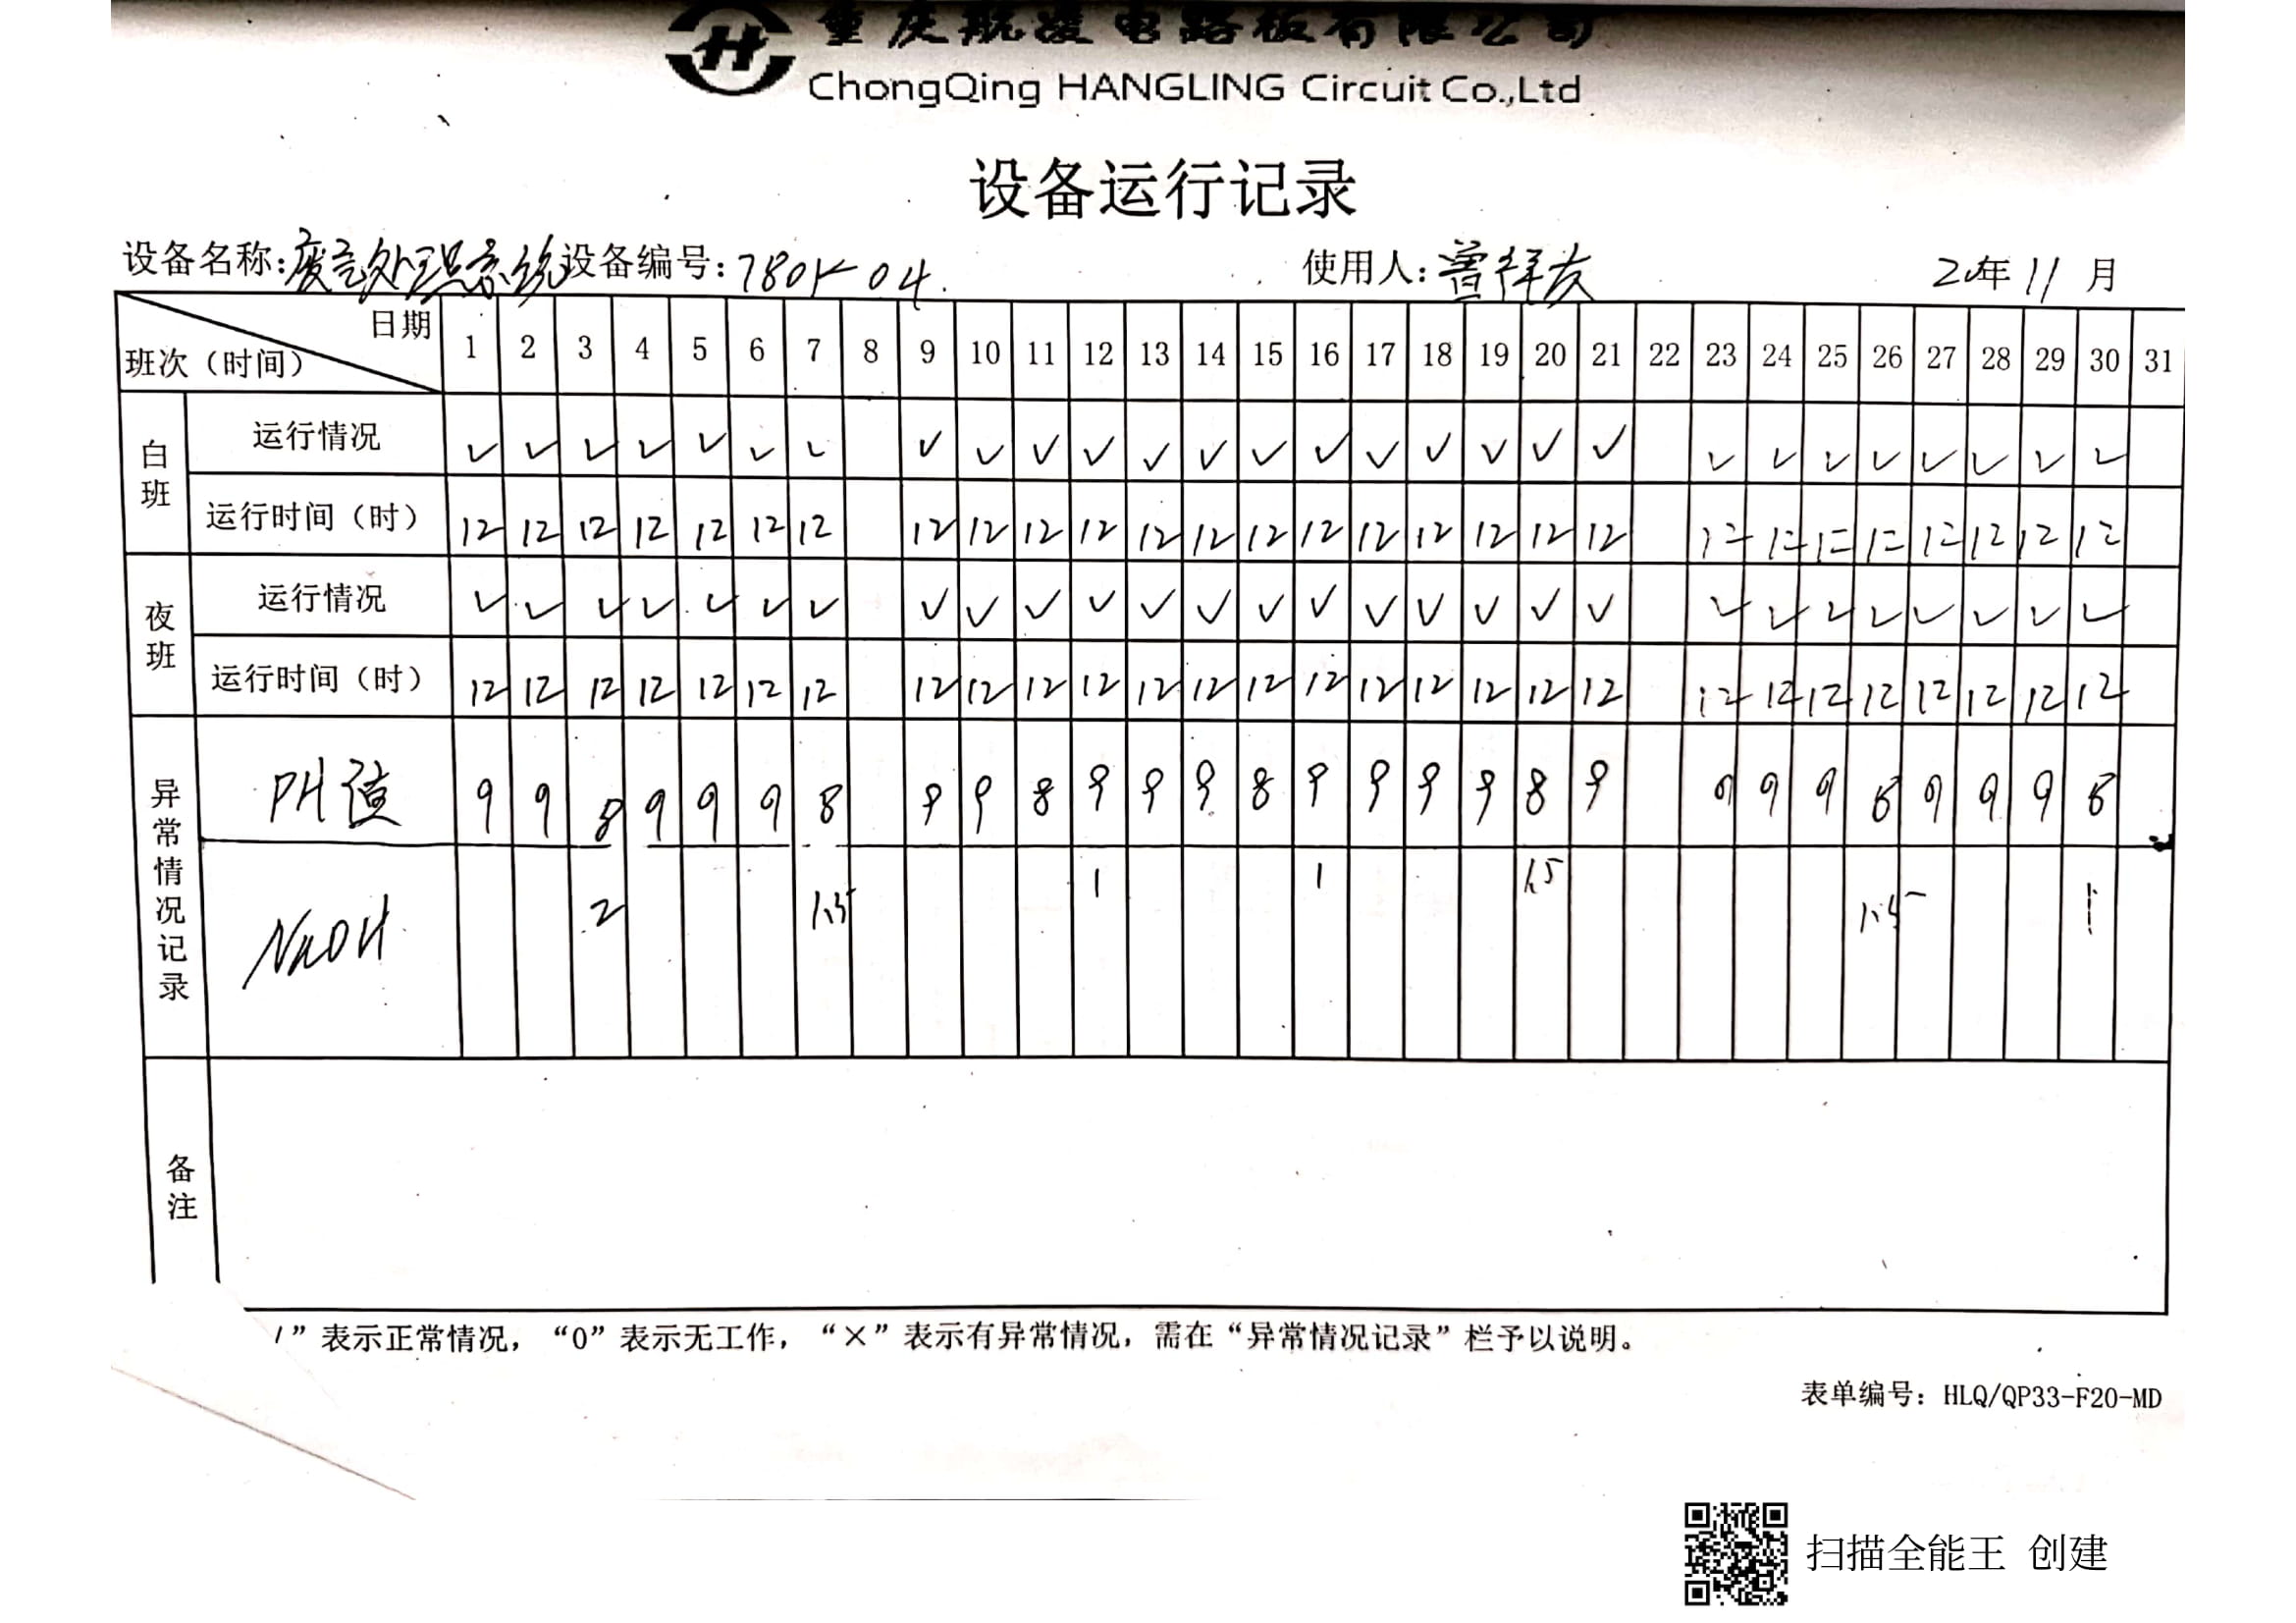 重庆航凌电路板有限公司
ChongQing HANGLING Circuit Co.,Ltd
设备运行记录
设备名称:废气处理系统 设备编号: 使用人:曾祥友 20年11月
日期
班次（时间） 1 2 3 4 5 6 7 8 9 10 11 12 13 14 15 16 17 18 19 20 21 22 23 24 25 26 27 28 29 30 31
白班 运行情况 ✓ ✓ ✓ ✓ ✓ ✓ ✓ ✓ ✓ ✓ ✓ ✓ ✓ ✓ ✓ ✓ ✓ ✓ ✓ ✓ ✓ ✓ ✓ ✓ ✓ ✓ ✓ ✓
运行时间（时） 12 12 12 12 12 12 12 12 12 12 12 12 12 12 12 12 12 12 12 12 12 12 12 12 12 12 12 12
夜班 运行情况 ✓ ✓ ✓ ✓ ✓ ✓ ✓ ✓ ✓ ✓ ✓ ✓ ✓ ✓ ✓ ✓ ✓ ✓ ✓ ✓ ✓ ✓ ✓ ✓ ✓ ✓ ✓ ✓
运行时间（时） 12 12 12 12 12 12 12 12 12 12 12 12 12 12 12 12 12 12 12 12 12 12 12 12 12 12 12 12
异常情况记录 PH值 9 9 8 9 9 9 8 9 9 8 9 9 9 8 9 9 9 9 8 9 9 9 9 8 9 9 9 8
NaOH 2 1.5 1 1 1.5 1.5 1
备注
”表示正常情况，“0”表示无工作，“×”表示有异常情况，需在“异常情况记录”栏予以说明。
表单编号：HLQ/QP33-F20-MD
扫描全能王 创建